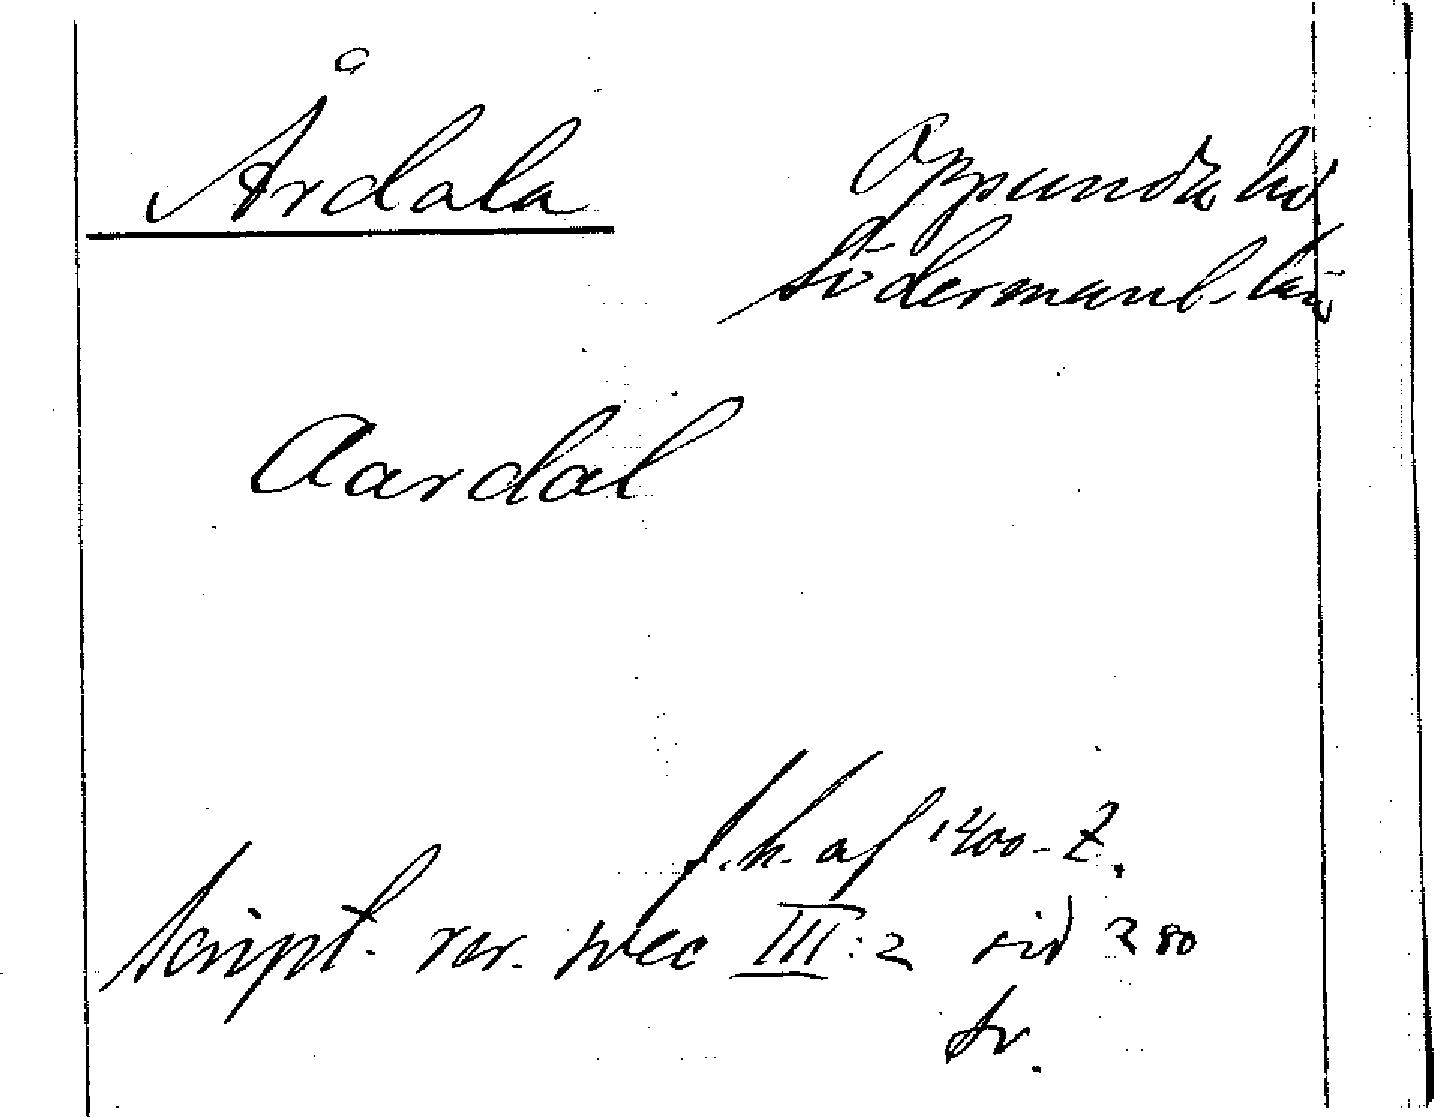 Årdala
Oppunda hd
Södermanl. län
Aardal
f. h. af 1400-t.
Script. rer. svec III:2 sid 280
sv.